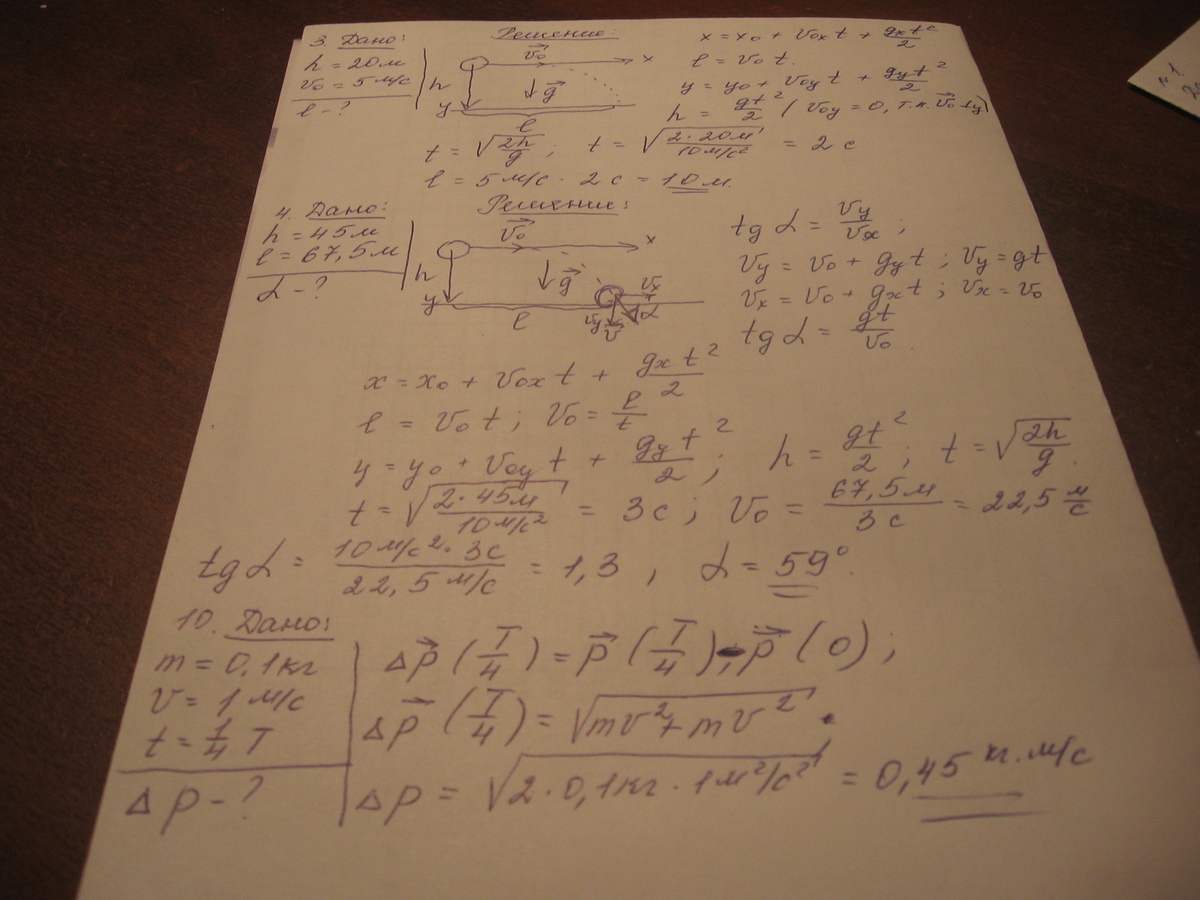 3. Дано:
h = 20м
v₀ = 5 м/с
l - ?
Решение:
v₀ x
h g
y
l
x = x₀ + v₀ₓ t + gₓt²/2
l = v₀ t.
y = y₀ + v₀y t + gyt²/2
h = gt²/2 (v₀y = 0, т.к. v₀ ⊥ y)
t = √(2h/g); t = √(2·20м/10м/с²) = 2 с
l = 5 м/с · 2 с = 10 м.
4. Дано:
h = 45м
l = 67,5м
α - ?
Решение:
v₀ x
h g
vₓ
y l vy v α
tg α = vy/vₓ ;
vy = v₀ + gy t ; vy = gt
vₓ = v₀ + gₓ t ; vₓ = v₀
tg α = gt/v₀ .
x = x₀ + v₀ₓ t + gₓ t²/2
l = v₀ t ; v₀ = l/t
y = y₀ + v₀y t + gy t²/2 ; h = gt²/2 ; t = √(2h/g) .
t = √(2·45м/10м/с²) = 3с ; v₀ = 67,5м/3с = 22,5 м/с
tg α = 10 м/с²· 3с/22,5 м/с = 1,3 , α = 59°.
10. Дано:
m = 0,1кг
v = 1 м/с
t = 1/4 T
Δp - ?
Δp (T/4) = p (T/4) - p (0) ;
Δp (T/4) = √(mv² + mv²) .
Δp = √(2·0,1кг·1м²/с²) = 0,45 кг.м/с